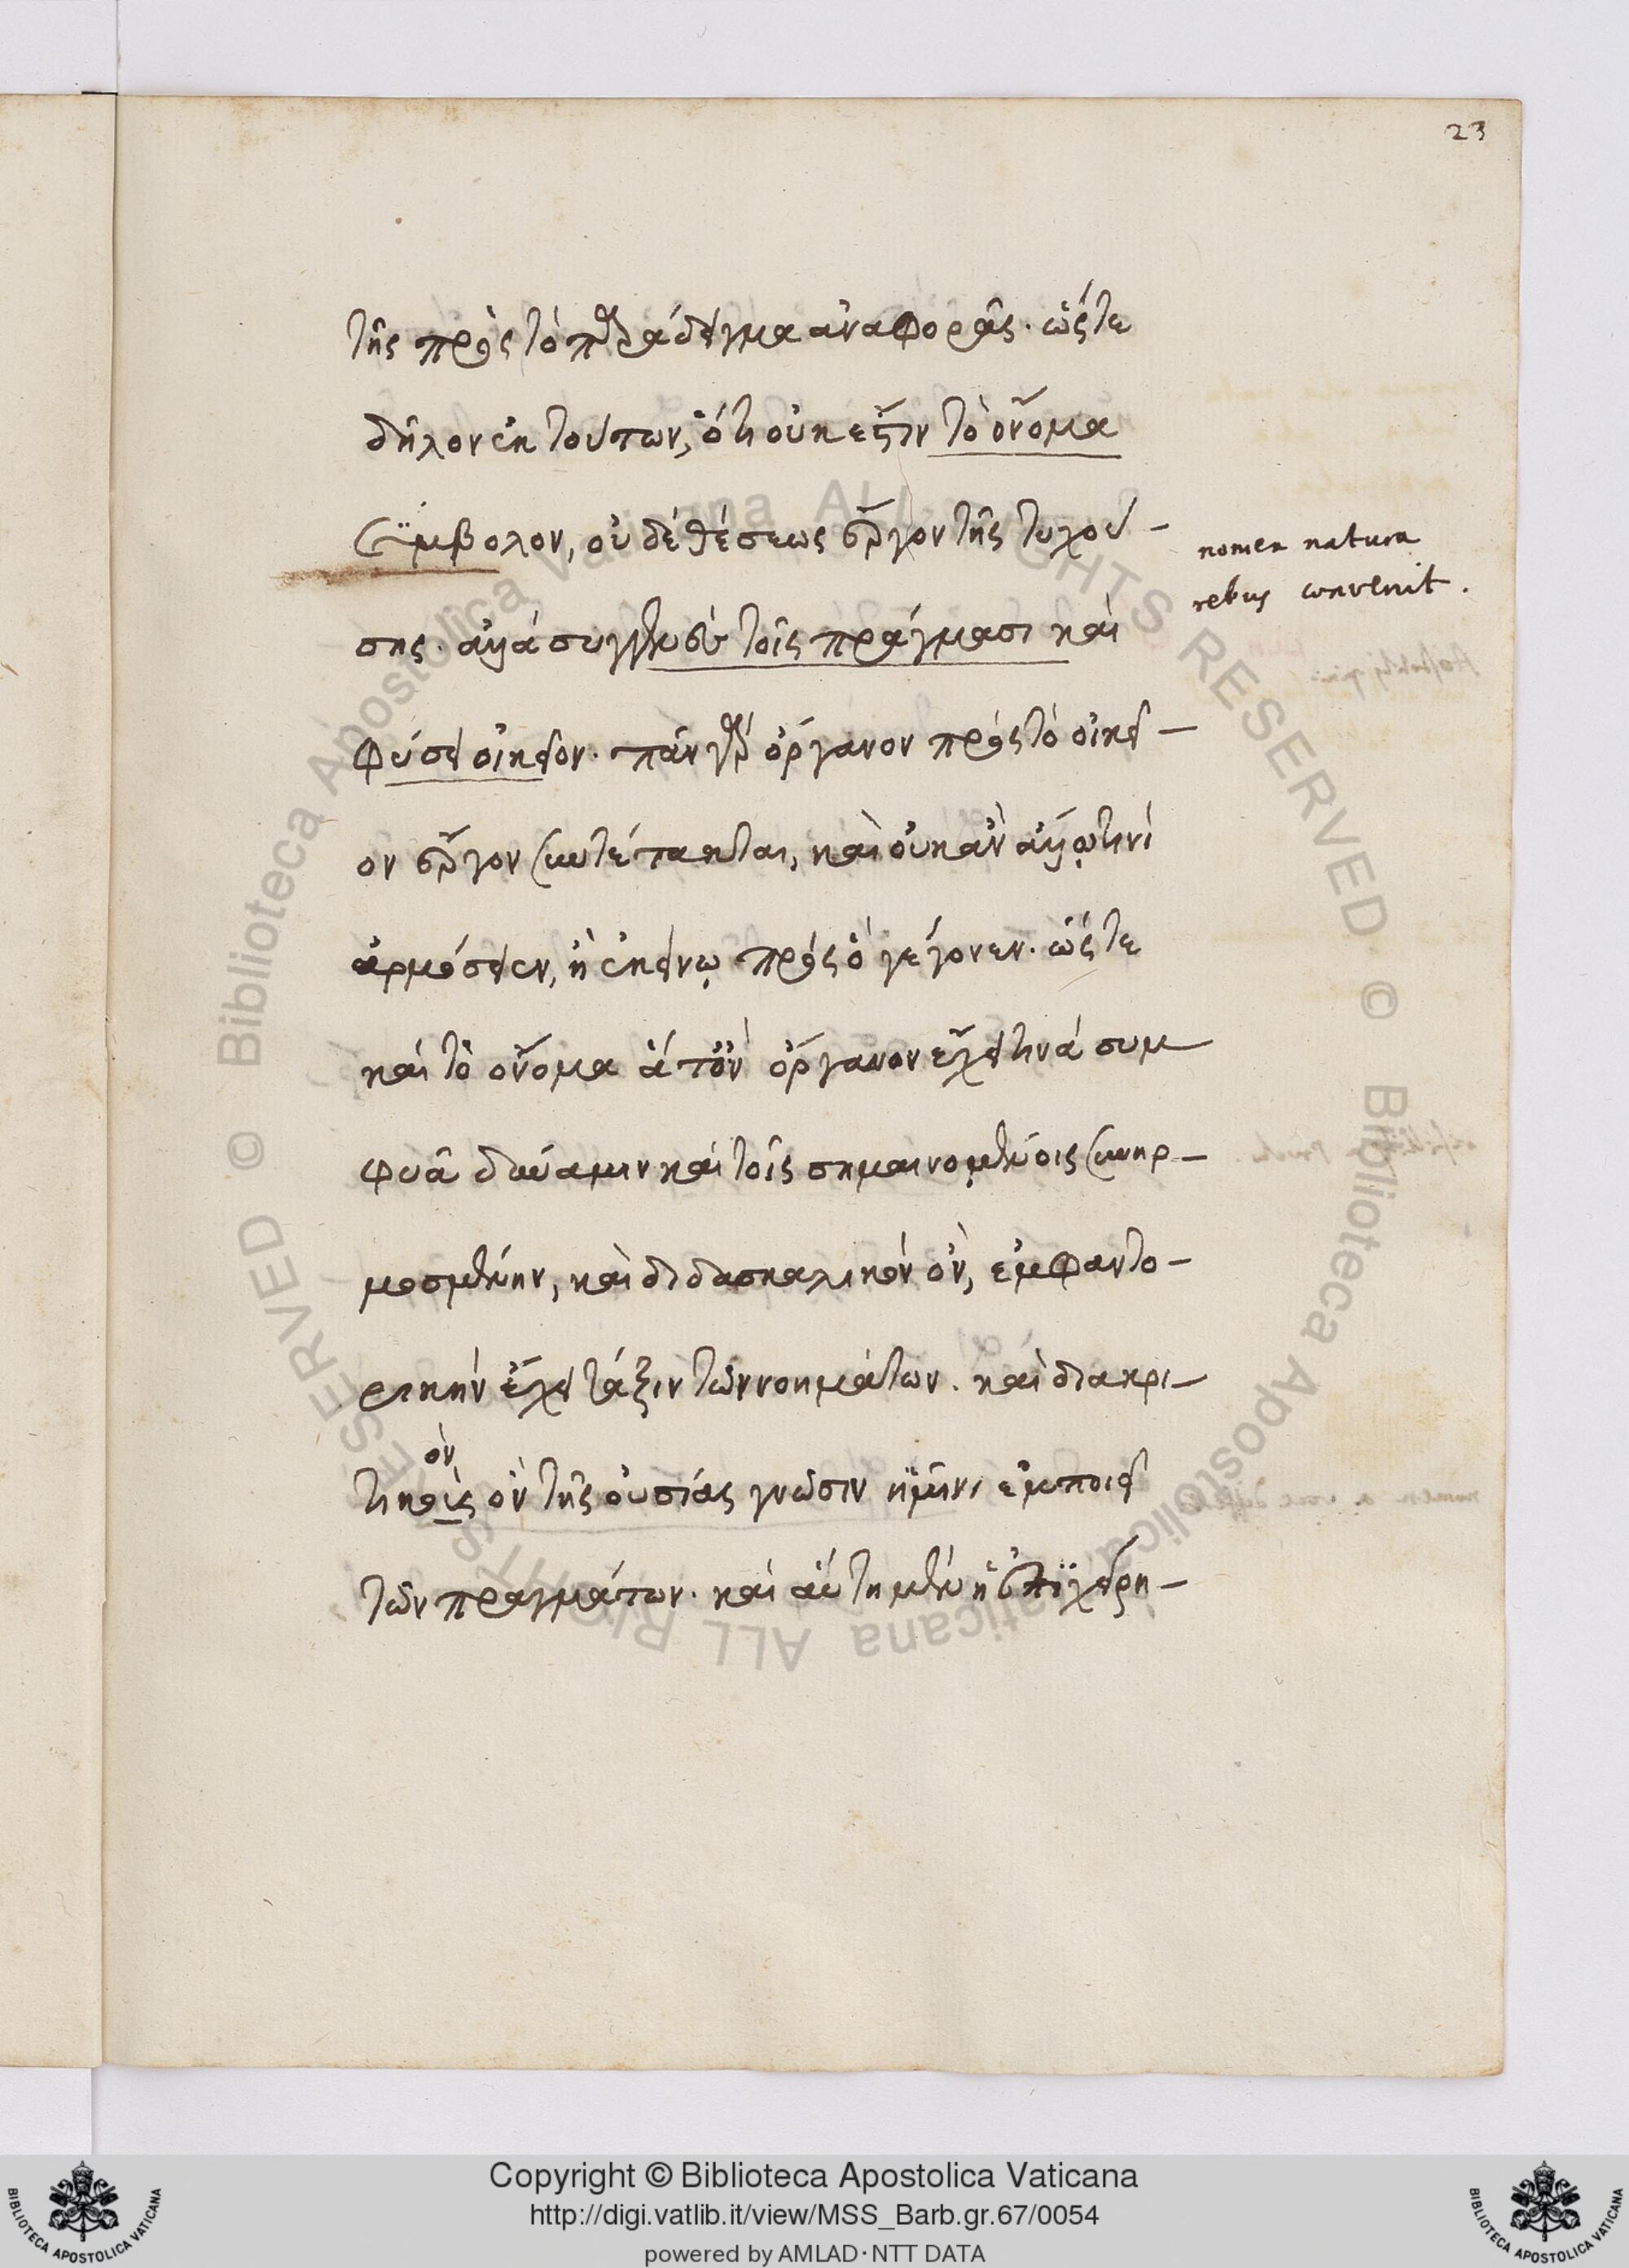 23
τῆς πρὸς τὸ παράδειγμα ἀναφορᾶς. ὥςτε
δῆλον ἐκ τούτων, ὅτι οὐκ ἔστιν τὸ ὄνομα
σύμβολον, οὐδὲ θέσεως ἔργον τῆς τυχού-
σης. ἀλλὰ συγγενὲς τοῖς πράγμασι καὶ
φύσει οἰκεῖον. πᾶν γὰρ ὄργανον πρὸς τὸ οἰκεῖ-
ον ἔργον συντέτακται, καὶ οὐκ ἂν ἄλλῳ τινὶ
ἁρμόσειεν, ἢ ἐκείνῳ πρὸς ὃ γέγονεν. ὥςτε
καὶ τὸ ὄνομα ἅτε ὂν ὄργανον ἔχει τινὰ συμ
φυᾶ δύναμιν καὶ τοῖς σημαινομένοις συνηρ-
μοσμένην, καὶ διδασκαλικὸν ὂν, ἐμφαντο-
ρικὴν ἔχει τάξιν τῶν νοημάτων. καὶ διακρι-
ὸν
τικοις ὂν τῆς οὐσίας γνῶσιν ἡμῖν ἐμποιεῖ
τῶν πραγμάτων. καὶ αὕτη μὲν ἡ ἐπιχείρη-
nomen natura
rebus convenit.
Copyright © Biblioteca Apostolica Vaticana
http://digi.vatlib.it/view/MSS_Barb.gr.67/0054
powered by AMLAD·NTT DATA
BIBLIOTECA APOSTOLICA VATICANA
BIBLIOTECA APOSTOLICA VATICANA
© Biblioteca Apostolica Vaticana ALL RIGHTS RESERVED
© Biblioteca Apostolica Vaticana ALL RIGHTS RESERVED